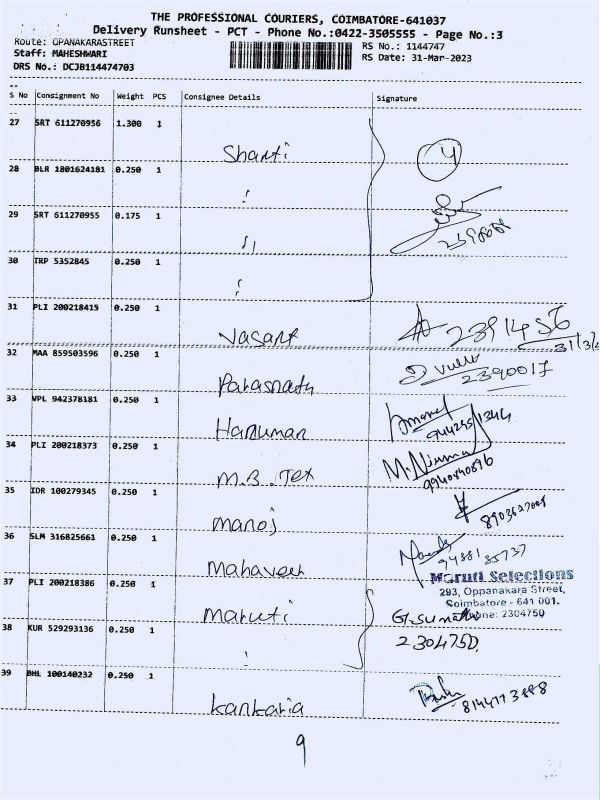 THE PROFESSIONAL COURIERS, COIMBATORE-641037
Delivery Runsheet - PCT - Phone No.:0422-3505555 - Page No.:3
Route: OPANAKARASTREET
RS No.: 1144747
Staff: MAHESHWARI
RS Date: 31-Mar-2023
DRS No.: DCJB114474703
S No Consignment No Weight PCS Consignee Details Signature
27 SRT 611270956 1.300 1 Shanti 4
28 BLR 1801624181 0.250 1
29 SRT 611270955 0.175 1
30 TRP 5352845 0.250 1
31 PLI 200218415 0.250 1 Vasant 2391456
31/3/2
32 MAA 859503596 0.250 1 Parasnath 2390017
33 VPL 942378181 0.250 1 Hanuman
34 PLI 200218373 0.250 1 M.B. Tex M. Nirma 9940840896
35 IDR 100279345 0.250 1 Manoj
36 SLM 316825661 0.250 1 Mahaveer 94881 85737
Maruti Selections
293, Oppanakara Street,
Coimbatore - 641 001.
Phone: 2304750
37 PLI 200218386 0.250 1 Maruti
38 KUR 529293136 0.250 1 2304750
39 BHL 100140232 0.250 1 Kankaria
9